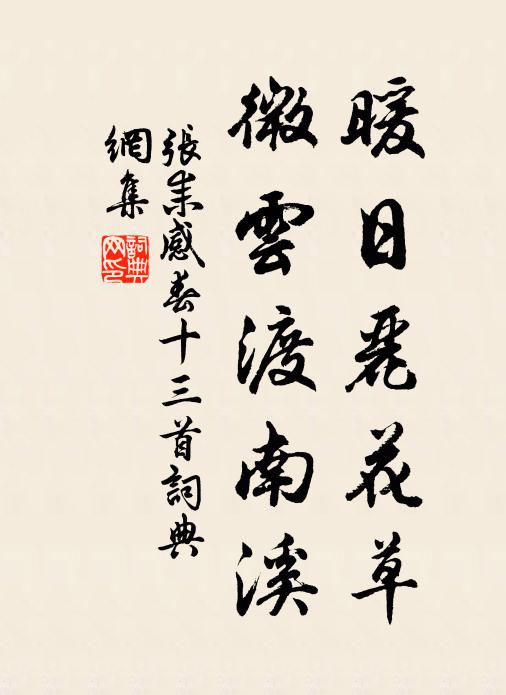 暖日麗花草
微雲渡南溪
張耒感春十三首詞典
網集
詞典
网印